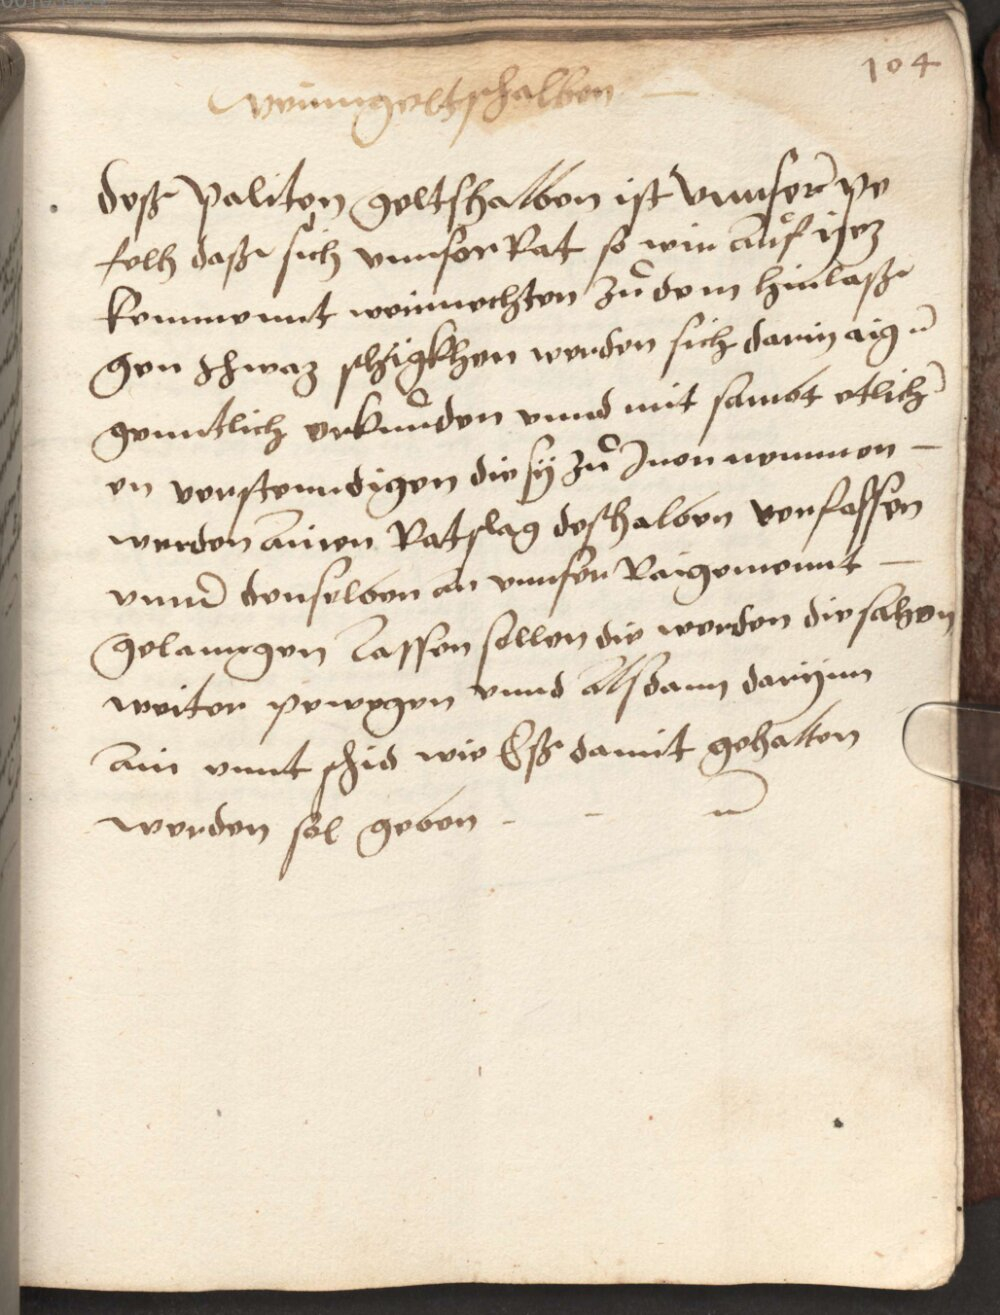 104
Weinngeltzhalben
deß Paliten geltshalben ist vnnser pe
felh daß sich vnnser Rat so wir auf ytz
kommennt weinnechten zu dem hinlaß
gen Schwaz schigkhen werden sich darin aig
genntlich erkunden vnnd mit sambt etlich
en verstenndigen die sy zu Inen nemmen
werden ainen Ratslag deshalben verfassen
vnnd denselben an vnnser Raigemennt
gelanngen lassen sollen die werden die sachen
weiter pewegen vnnd alßdann daryinn
ain vnnt schid wie Eß damit gehalten
werden sol geben